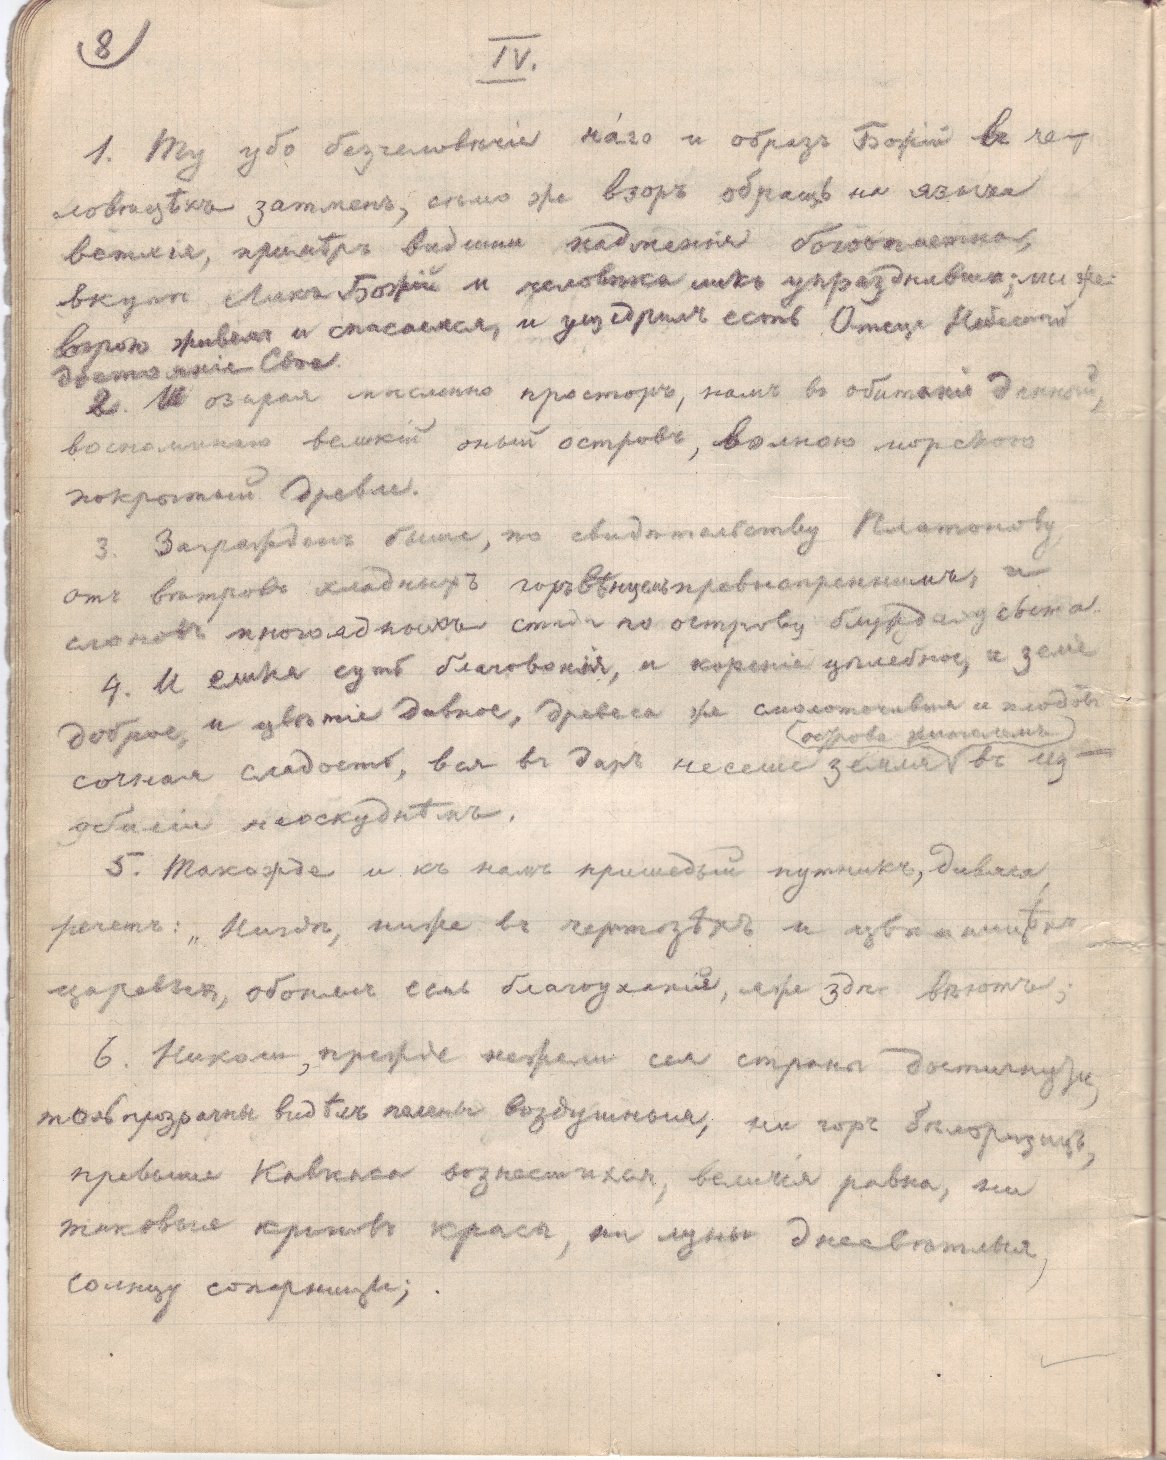 8
IV.
1. Ту убо безчеловѣчіе наго и образъ Божій въ че-
ловѣцѣхъ затменъ, сѣмо же взоръ обращь на языка
вѣтхія, примѣръ видиши надменія богоотметна,
вкупѣ Ликъ Божій и человѣка ликъ упразднивша; мы же
вѣрою живемъ и спасаемся, и ущедрилъ есть Отецъ Небесный
достояніе Свое.
2. И озирая мысленно просторъ, намъ въ обитаніе данный,
воспоминаю великій оный островъ, волною морскою
покрытый древле.
3. Загражденъ бѣше, по свидѣтельству Платонову,
отъ вѣтровъ хладныхъ горъ вѣнцемъ превнапреннымъ, и
слоновъ многоядныхъ стада по острову блуждаху свѣта.
4. И елика суть благовонія, и кореніе цѣлебное, и зеліе
доброе, и цвѣтіе дивное, древеса же смолоточивыя и плодовъ
острова жителемъ
сочная сладость, вся въ даръ несеше земля въ из-
обиліи неоскуднѣмъ.
5. Такожде и къ намъ пришедый путникъ, дивяся,
речетъ: „Нигдѣ, ниже въ чертозѣхъ и цвѣтницѣхъ
царевыхъ, обонялъ есмь благоуханія, яже здѣ вѣютъ;
6. Николи, прежде нежели сея страны достигнухъ,
толь прозрачны видѣлъ пелены воздушныя, ни горъ бѣлоризицъ,
превыше Кавказа вознестихся, величія равна, ни
таковыя криновъ красы, ни луны днесвѣтлыя,
солнцу соперницы;